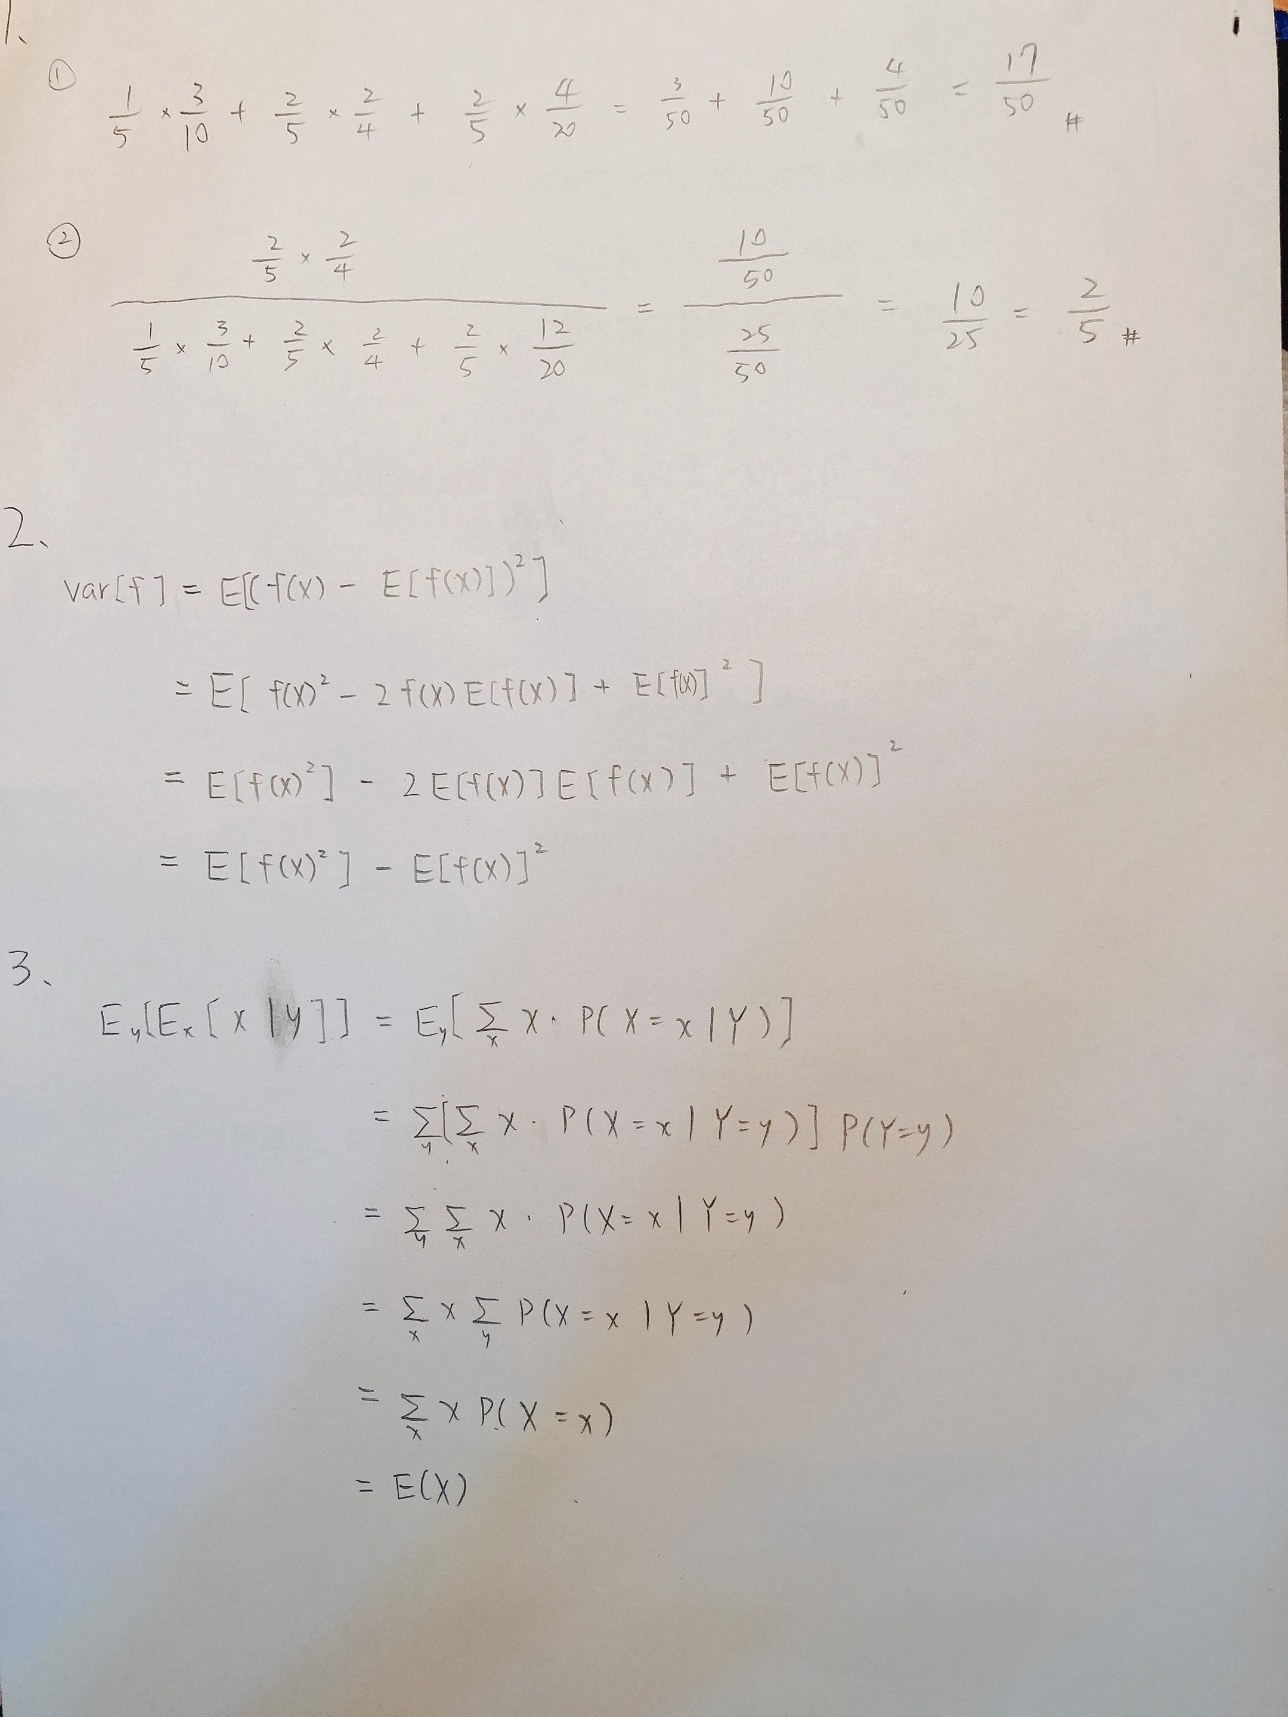 1.
① 1/5 × 3/10 + 2/5 × 2/4 + 2/5 × 4/20 = 3/50 + 10/50 + 4/50 = 17/50 #
② (2/5 × 2/4) / (1/5 × 3/10 + 2/5 × 2/4 + 2/5 × 12/20) = (10/50) / (25/50) = 10/25 = 2/5 #
2.
var[f] = E[(f(x) - E[f(x)])²]
= E[ f(x)² - 2 f(x) E[f(x)] + E[f(x)]² ]
= E[f(x)²] - 2 E[f(x)] E[f(x)] + E[f(x)]²
= E[f(x)²] - E[f(x)]²
3.
E_y[E_x[x|y]] = E_y[ Σ_x x · P(X=x|Y)]
= Σ_y[Σ_x x · P(X=x|Y=y)] P(Y=y)
= Σ_y Σ_x x · P(X=x|Y=y)
= Σ_x x Σ_y P(X=x|Y=y)
= Σ_x x P(X=x)
= E(X)